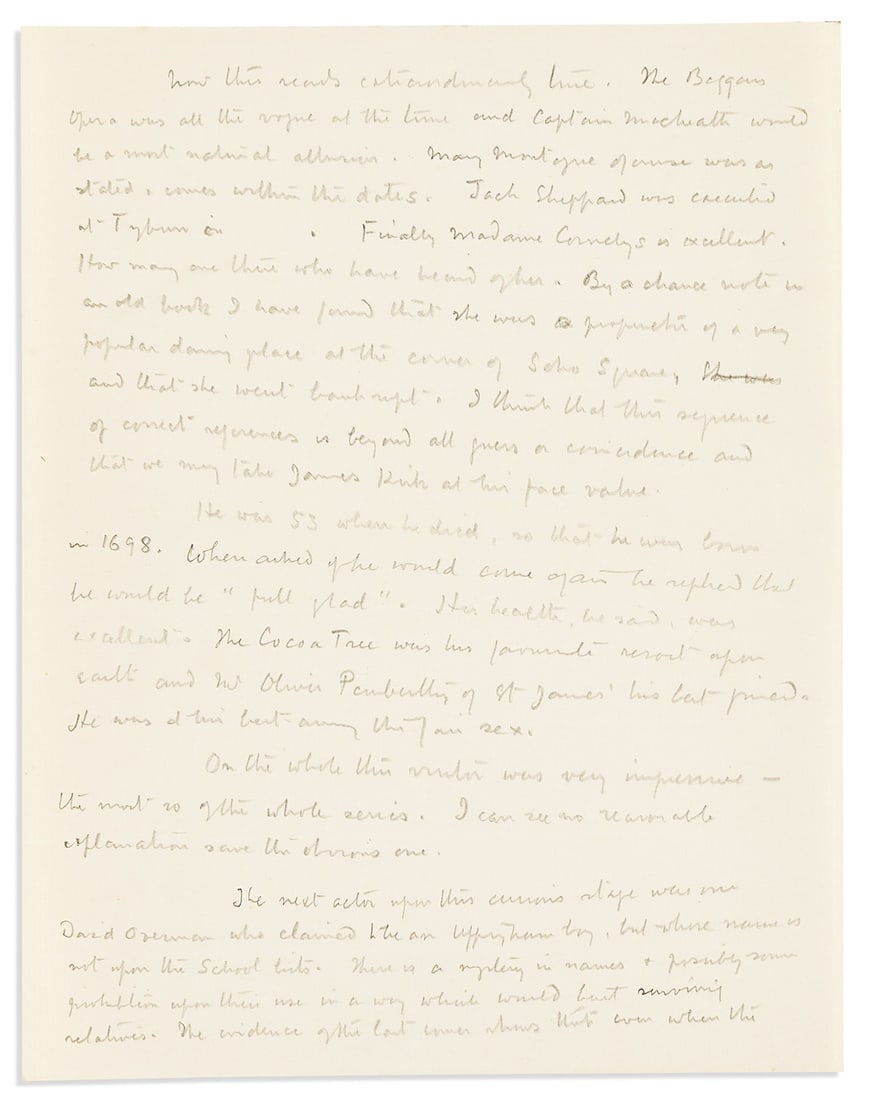 Now this reads extraordinarily true. The Beggars
Opera was all the vogue at the time and Captain Macheath would
be a most natural allusion. Mary Montague of course was as
stated & comes within the dates. Jack Sheppard was executed
at Tyburn in . Finally Madame Cornelys is excellent.
How many are there who have heard of her. By a chance note in
an old book I have found that she was a proprietor of a very
popular dancing place at the corner of Soho Square, She was
and that she went bankrupt. I think that this sequence
of correct references is beyond all guess or coincidence and
that we may take James Kirk at his face value.
He was 53 when he died, so that he was born
in 1698. When asked if he would come again he replied that
he would be "full glad". His health, he said, was
excellent. The Cocoa Tree was his favourite resort upon
earth and Mr Oliver of St James' his best friend.
He was at his best among the fair sex.
On the whole this visitor was very impressive —
the most so of the whole series. I can see no reasonable
explanation save the obvious one.
The next actor upon this curious stage was one
David Overman who claimed to be an Uppingham boy, but whose name is
not upon the School lists. There is a mystery in names & possibly some
prohibition upon their use in a way which would hurt surviving
relatives. The evidence of the last comer shows that even when the